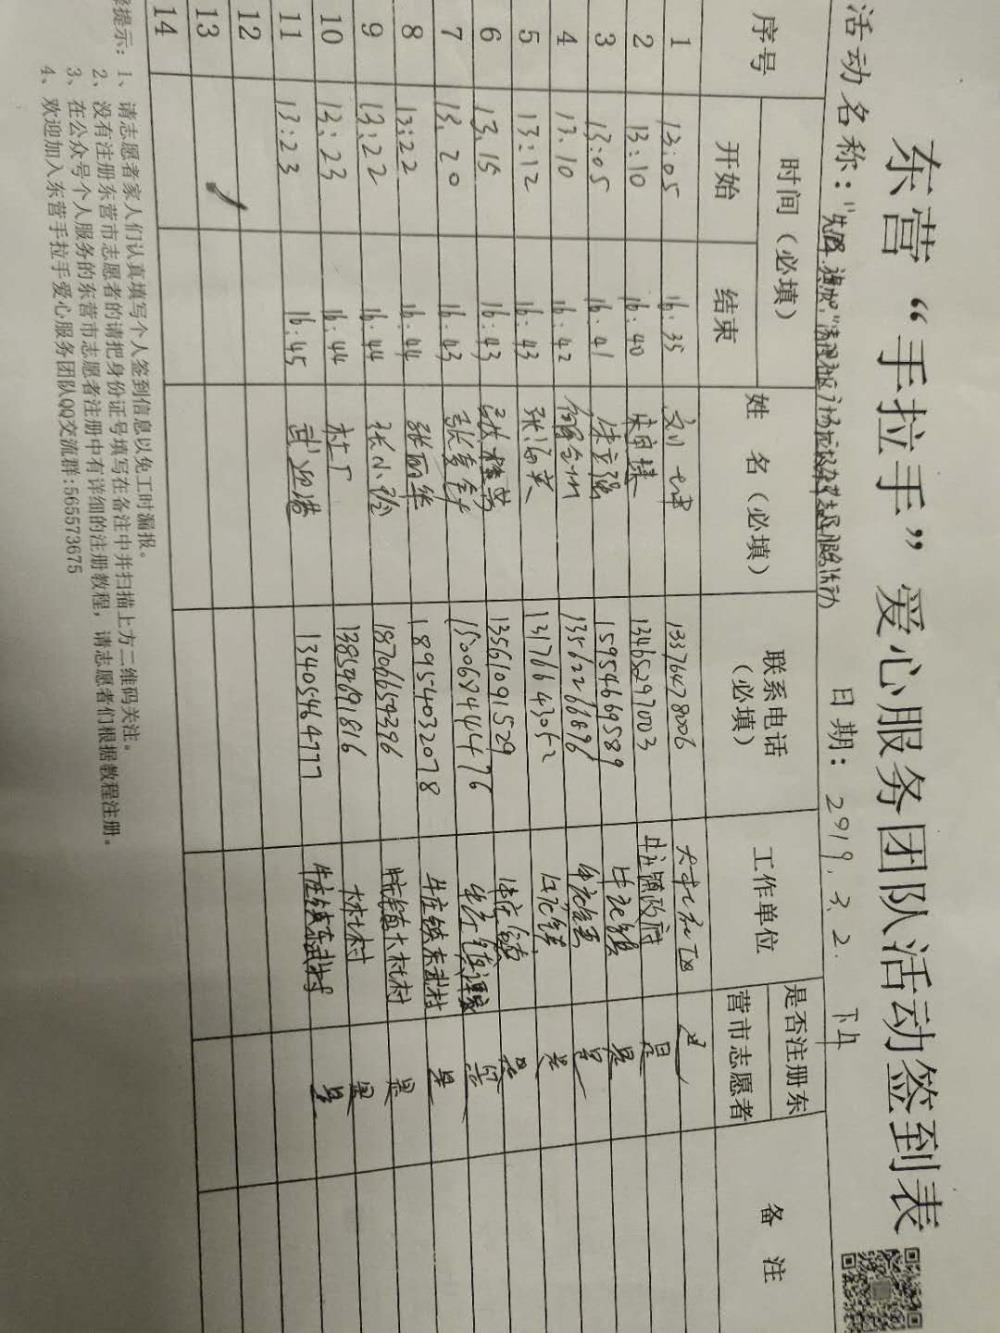 东营“手拉手”爱心服务团队活动签到表
活动名称： 日期：2919.3.2. 下午
序号 时间（必填） 姓 名（必填） 联系电话（必填） 工作单位 是否注册东营市志愿者 备 注
开始 结束
1 13:05 16:35 13376478006
2 13:10 16:40 13465297003 牛庄镇政府 是
3 13:05 16.41 15954669589 牛庄镇 是
4 13.10 16:42 13562266896 是
5 13:12 16:43 张海英 13176643052 牛庄镇 是
6 13.15 16:43 13561091529 是
7 13.20 16.43 15006844476 是
8 13:22 16.44 张丽华 18954032078 牛庄镇东武村 是
9 13:22 16.44 张小玲 18706659396 牛庄镇大杜村 是
10 13:23 16:44 杜厂 13859691816 大杜村 是
11 13:23 16:45 武迎港 13405464777 牛庄镇东武村 是
12
13
14
提示：1、请志愿者家人们认真填写个人签到信息以免工时漏报。
2、没有注册东营市志愿者的请把身份证号填写在备注中并扫描上方二维码关注。
3、在公众号个人服务的东营市志愿者注册中有详细的注册教程，请志愿者们根据教程注册。
4、欢迎加入东营手拉手爱心服务团队QQ交流群:565573675